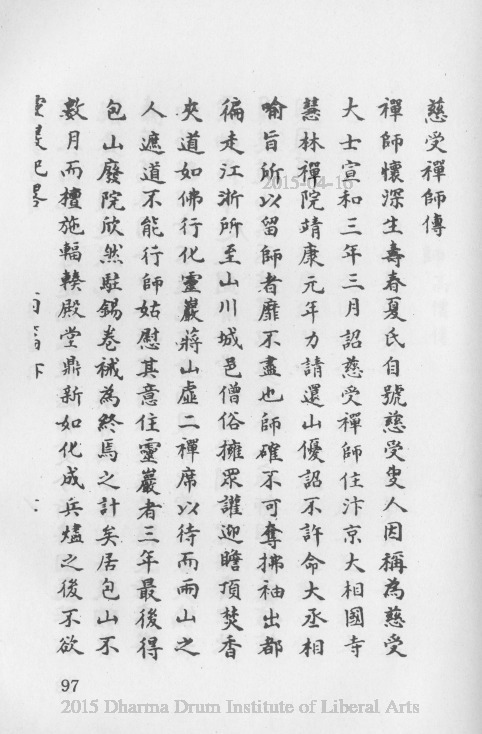 慈受禪師傳
禪師懷深生壽春夏氏自號慈受叟人因稱為慈受
大士宣和三年三月詔慈受禪師住汴京大相國寺
慧林禪院靖康元年力請還山優詔不許命大丞相
喻旨所以留師者靡不盡也師確不可奪拂袖出都
徧走江浙所至山川城邑僧俗擁眾讙迎瞻頂焚香
夾道如佛行化靈巖蔣山虛二禪席以待而兩山之
人遮道不能行師姑慰其意住靈巖者三年最後得
包山廢院欣然駐錫卷祴為終焉之計矣居包山不
數月而檀施輻輳殿堂鼎新如化成兵燼之後不欲
97
2015-04-16
2015 Dharma Drum Institute of Liberal Arts